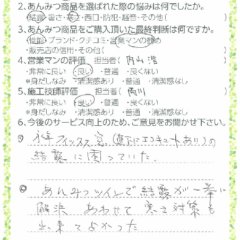 2.あんみつ商品を選ばれた際の悩みは何でしたか。
結露・暑さ・寒さ・西日・防犯・騒音・その他( )
3.あんみつ商品をご購入頂いた最終判断は何ですか。
価格・ブランド・クチコミ・営業マンの勧め
販売店の信用・その他( )
4.営業マンの評価 担当者( )
・非常に良い・良い・普通・良くない
●身だしなみ ・清潔感あり ・普通 ・清潔感なし
5.施工技術評価 担当者( )
・非常に良い・良い・普通・良くない
●身だしなみ ・清潔感あり ・普通 ・清潔感なし
6.今後のサービス向上のため、ご意見をお聞かせ下さい。
結露に困っていた。
あんみつツインで結露が一番に
解決 あわせて 寒さ対策も
出来てよかった